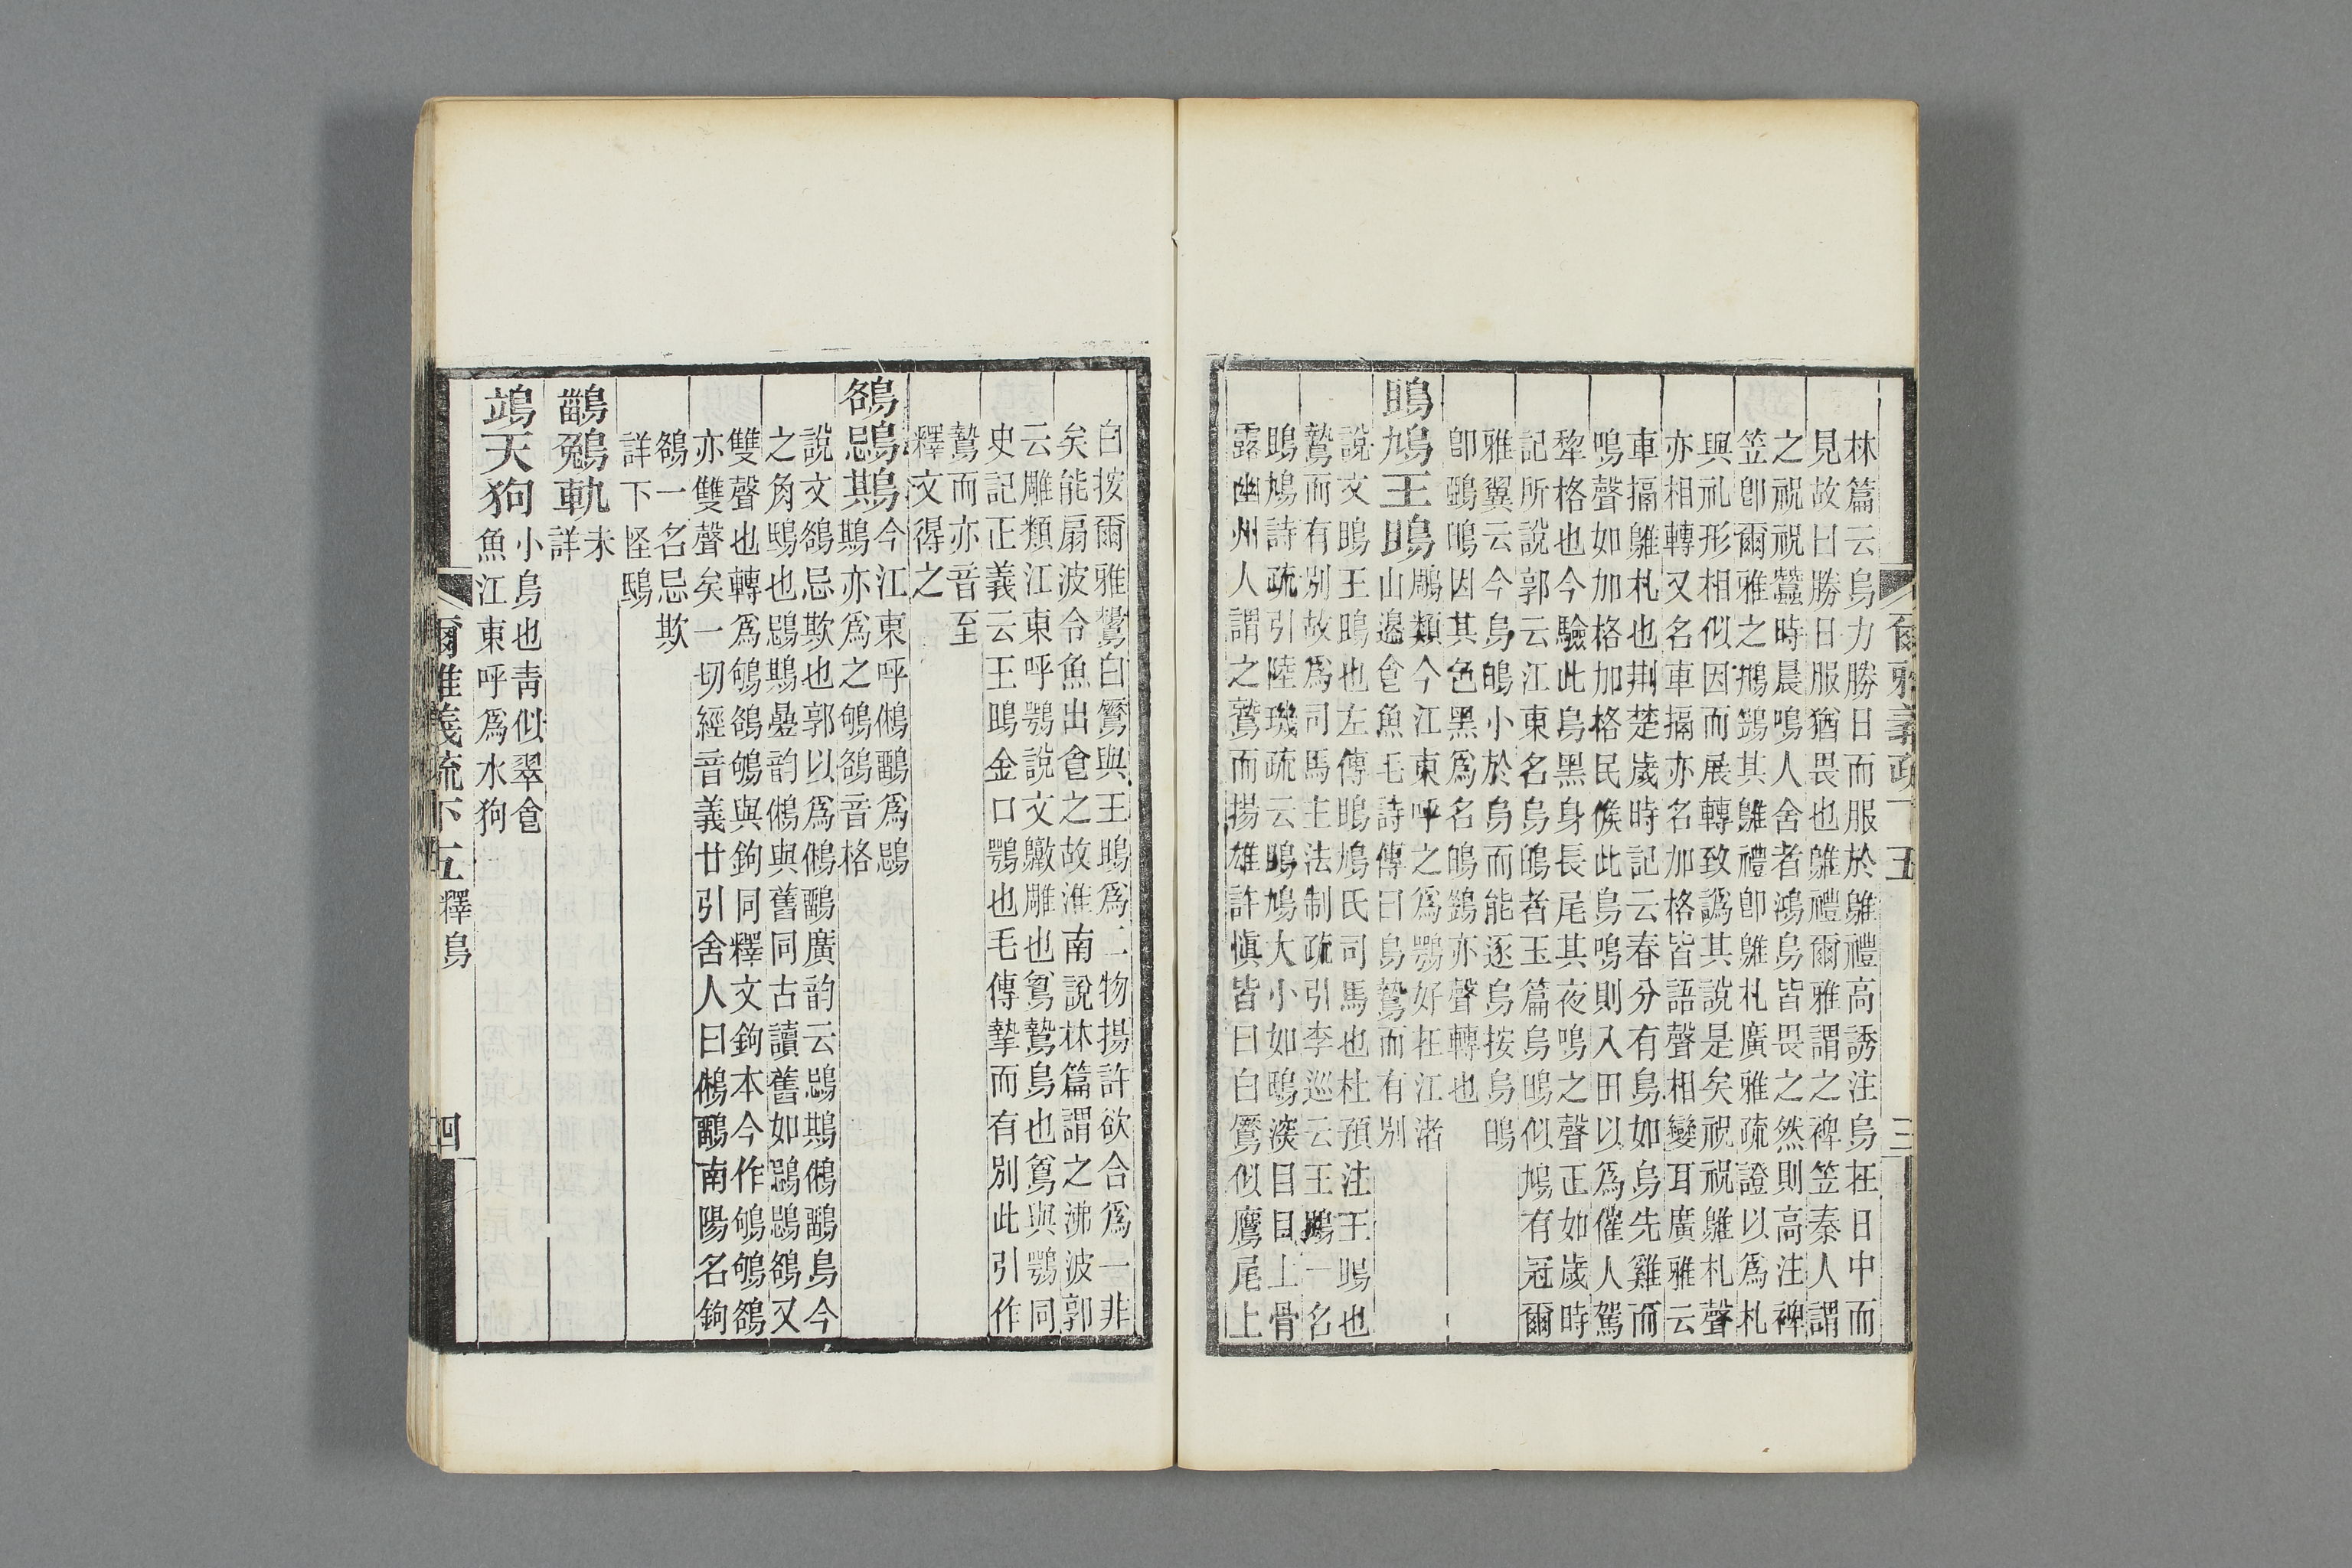 爾雅義疏下五 三
林篇云烏力勝日而服於鵻禮高誘注烏在日中而
見故曰勝日服猶畏也鵻禮爾雅謂之裨笠秦人謂
之祝祝蠶時晨鳴人舍者鴻鳥皆畏之然則高注裨
笠卽爾雅之鵧鷑其鵻禮卽鵻札廣雅疏證以爲札
與礼形相似因而展轉致譌其說是矣祝祝鵻札聲
亦相轉又名車搹亦名加格皆語聲相變耳廣雅云
車搹鵻札也荆楚歲時記云春分有鳥如烏先雞而
鳴聲如加格加格民候此鳥鳴則入田以爲催人駕
犂格也今驗此鳥黑身長尾其夜鳴之聲正如歲時
記所說郭云江東名烏䳓者玉篇烏䳓似鳩有冠爾
雅翼云今烏䳓小於烏而能逐烏按烏䳓
卽鵶䳓因其色黑爲名䳓鷑亦聲轉也
鴡鳩王鴡
鵰類今江東呼之爲鶚好在江渚
山邊食魚毛詩傳曰鳥鷙而有別
說文鴡王鴡也左傳鴡鳩氏司馬也杜預注王鴡也
鷙而有別故爲司馬主法制疏引李巡云王鴡一名
鴡鳩詩疏引陸璣疏云鴡鳩大小如鴟深目目上骨
露幽州人謂之鷲而揚雄許愼皆曰白鷢似鷹尾上
白按爾雅鸉白鷢與王鴡爲二物揚許欲合爲一非
矣能扇波令魚出食之故淮南說林篇謂之沸波郭
云雕類江東呼鶚說文鷻雕也䳒鷙鳥也䳒與鶚同
史記正義云王鴡金口鶚也毛傳摯而有別此引作
鷙而亦音至
釋文得之
鵅鵋䳢
今江東呼鵂鶹爲鵋
䳢亦爲之鴝鵅音格
說文鵅忌欺也郭以爲鵂鶹廣韵云鵋䳢鵂鶹鳥今
之角鴟也鵋䳢疊韵鵂與舊同古讀舊如鵋鵋鵅又
雙聲也轉爲鴝鵅鴝與鉤同釋文鉤本今作鴝鴝鵅
亦雙聲矣一切經音義廿引舍人曰鵂鶹南陽名鉤
鵅一名忌欺
詳下怪鴟
鶅鵵軌
未
詳
鴗天狗
小鳥也靑似翠食
魚江東呼爲水狗
爾雅義疏下五釋鳥 四